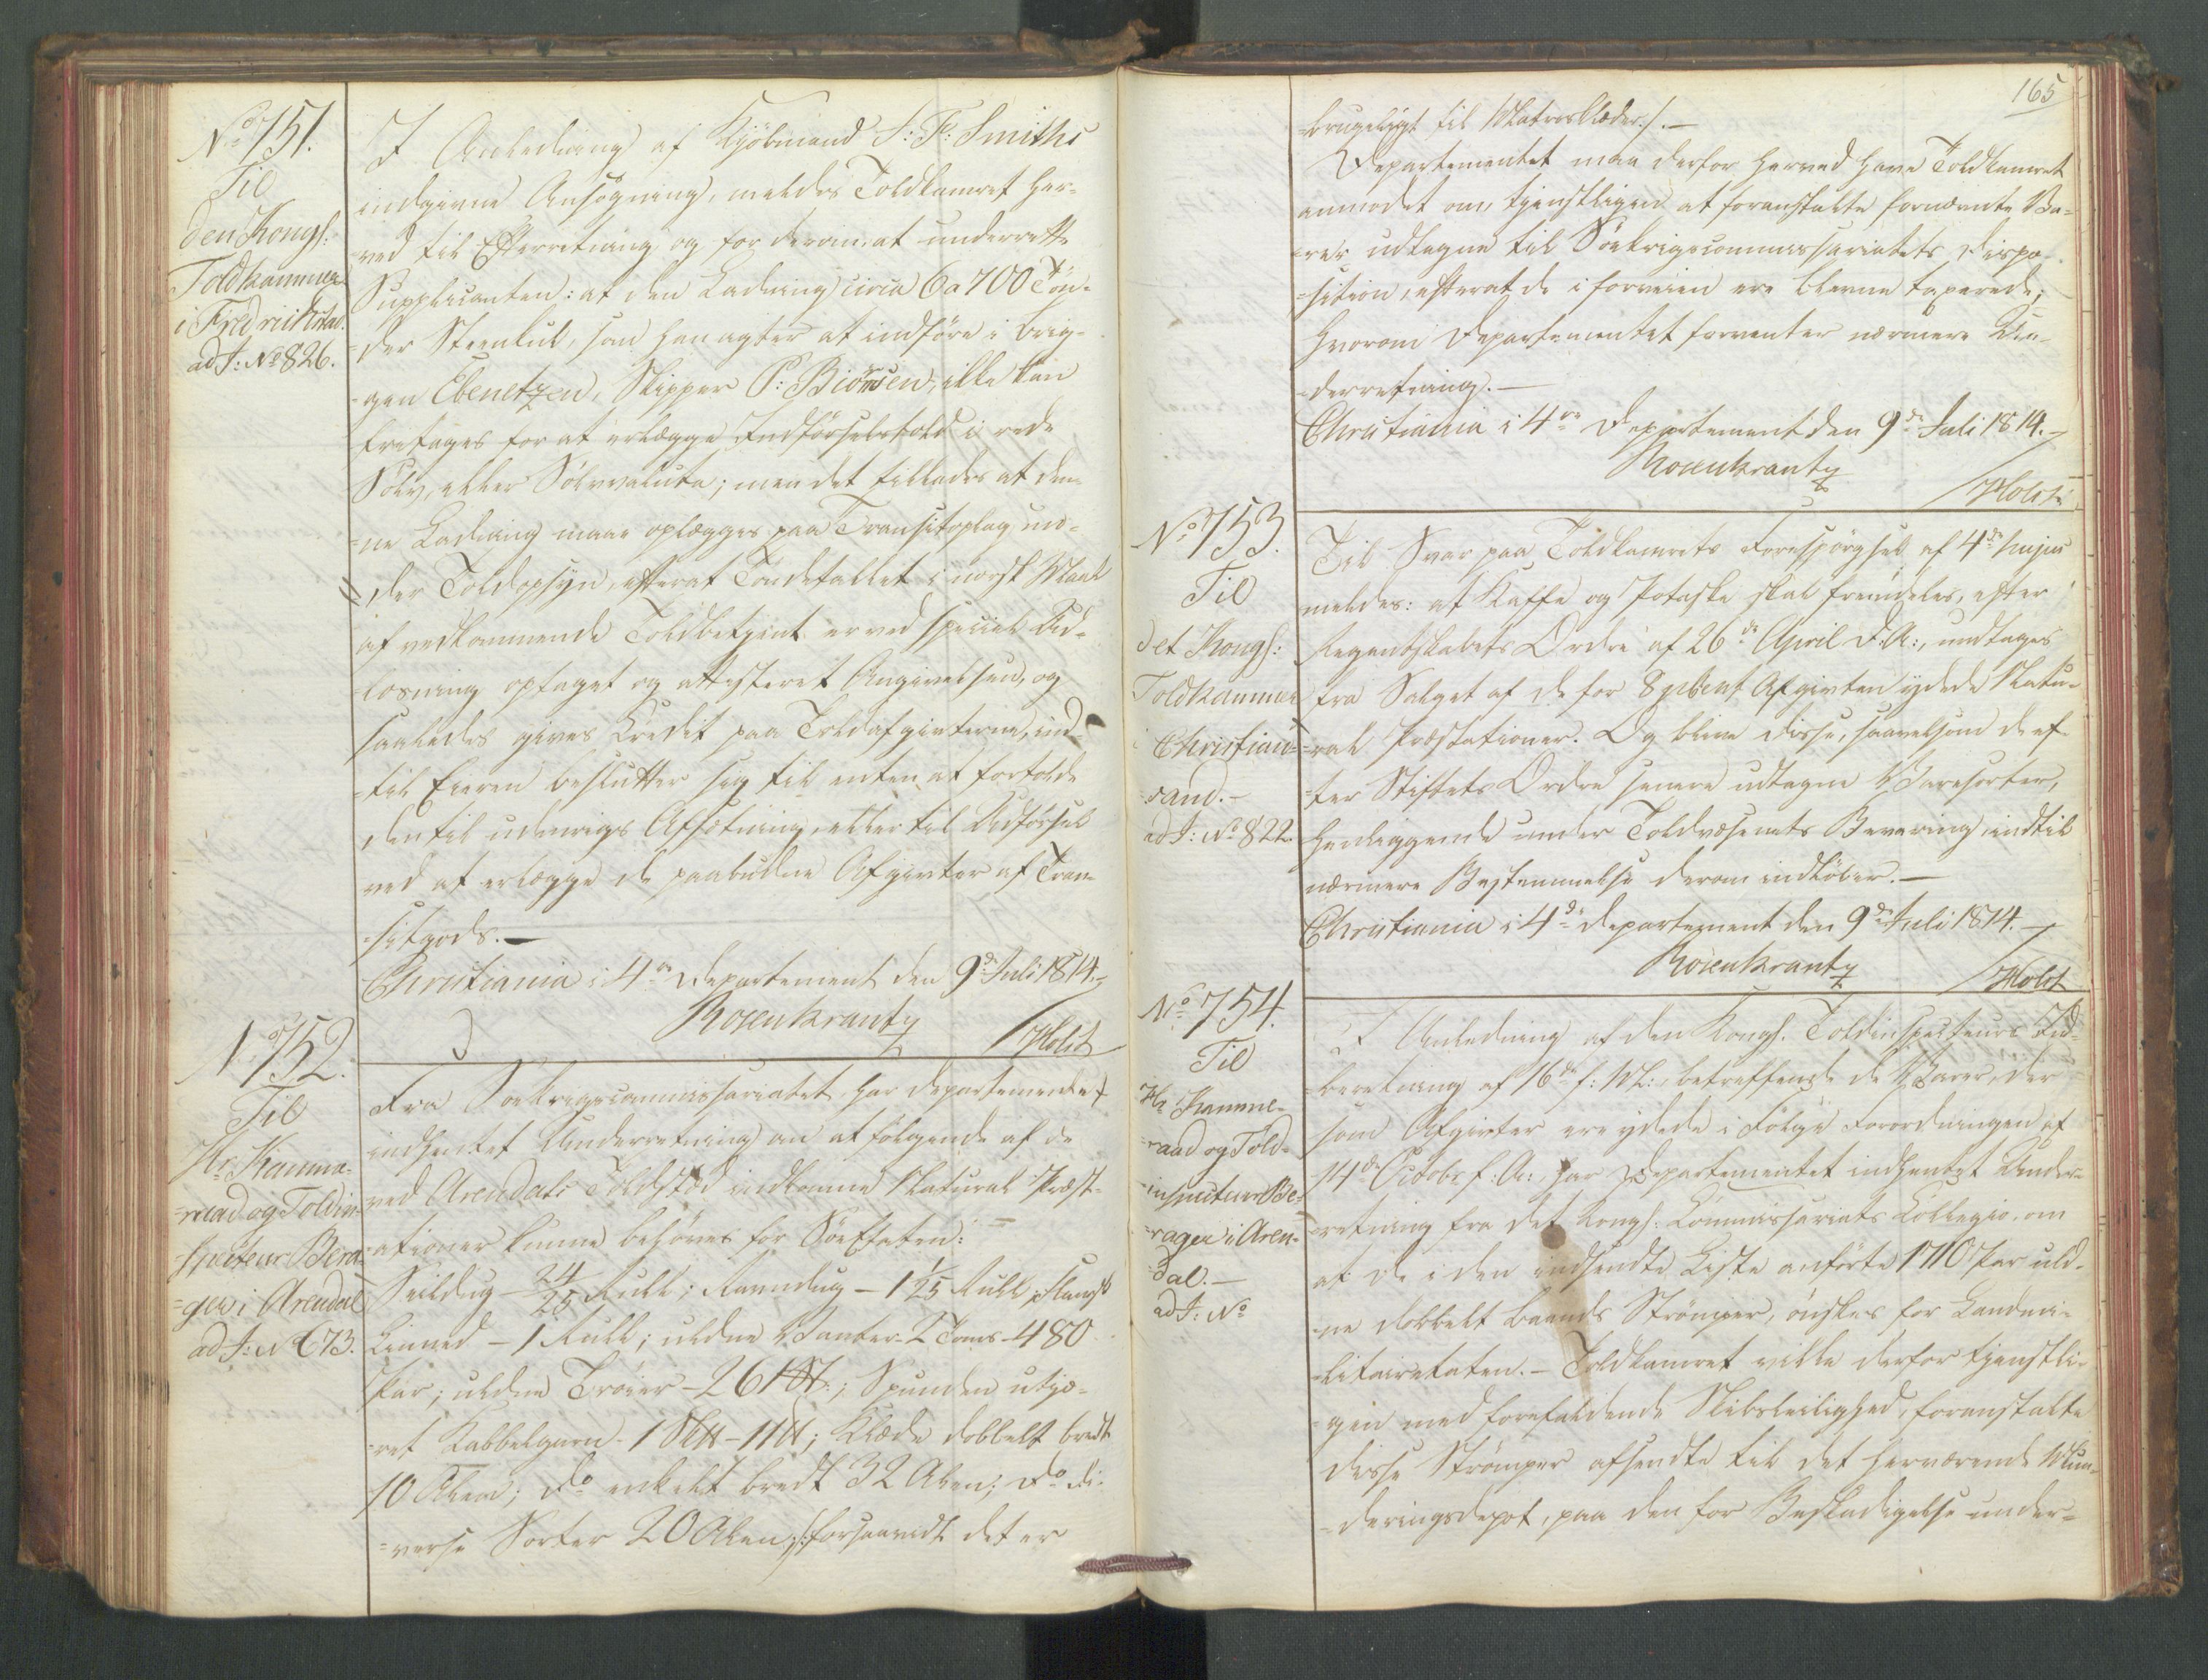 No 751.
Til
den Kongl:
Toldkammer
i Fredrichstad.
ad J: No 826.
I Anledning af Kjöbmand S: F: Smiths
indgivne Ansøgning, meldes Toldkamret her-
ved til Efterretning og for derom at underrette
Supplicanten: at den Ladning circa 6 a 700 Tøn-
der Steenkul, som han agter at indføre i Brig-
gen Ebenetzen, Skipper P: Biörnsen, ikke kan
fritages for at erlægge Indførselstold i rede
Sølv, eller Sølvvaluta; men det tillades at den-
ne Ladning maae oplægges paa Transitoplag un-
der Toldopsyn, efterat Tøndetallet i norsk Maal
af vedkommende Toldbetjent er ved special Ud-
losning optaget og attesteret Angivelsen, og
saaledes gives Credit paa Toldafgivterne, ind-
til Eieren beslutter sig til enten at fortolde
den til indenrigs Afsætning, eller til Udførsel
ved at erlægge de paabudne Afgivter af Tran-
sitgods. —
Christiania i 4de Departement den 9de Juli 1814. —
Rosenkrantz
/Holst
No 752.
Til
Hr. Kamme-
raad og Toldin-
specteur Bera-
ger i Arendal
ad J: No 673.
Fra Søekrigscommissariatet har Departementet
indhentet Underretning om at følgende af de
ved Arendals Toldsted indkomne Natural Præst-
ationer kunne behøves for Søe Etaten:
Seildug — 24/25 Rull; Ravndug — 1 1/25 Rull; Flamsk
Linned — 1 Rull; uldne Vanter 2 Toms 480
Par; uldne Trøier — 261 ; Spunden utjæ-
ret Kabbelgarn 1 — 11 ; Klæde dobbelt bredt
10 Alen; Do enkelt bredt 32 Alen; Do di-
verse Sorter 20 Alen /: forsaavidt det er
165
brugeligt til Matrosklæder :/. —
Departementet maa derfor herved have Toldkamret
anmodet om, tjenstligen at foranstalte fornævnte Va-
rer udtagne til Søekrigscommissariatets Dispo-
sition, efterat de i forveien ere blevne taxerede;
hvorom Departementet forventer nærmere Un-
derretning. —
Christiania i 4de Departement den 9de Juli 1814. —
Rosenkrantz
/Holst
No 753.
Til
det Kongl:
Toldkammer
i Christian-
sand. —
ad J: No 822.
Til Svar paa Toldkamrets Forespørgsel af 4de hujus
meldes: at Kaffe og Potaske skal fremdeles, efter
Regentskabets Ordre af 26de April d. A:, undtages
fra Salget af de for 8 pCent Afgivten ydede Natu-
ral Præstationer. Og blive disse, saavelsom de ef-
ter Stiftets Ordre senere udtagne Varesorter,
henliggende under Toldvæsenets Bevaring, indtil
nærmere Bestemmelse derom indløber. —
Christiania i 4de Departement den 9de Juli 1814. —
Rosenkrantz
/Holst
No 754.
Til
Hr. Kamme-
raad og Told-
inspecteur Be-
rager i Aren-
dal. —
ad J: No
I Anledning af den Kongl. Toldinspecteurs Ind-
beretning af 16de f: M:, betreffende de Varer, der
som Afgivter ere ydede i Følge Forordningen af
14de Octobr f: A: har Departementet indhentet Under-
retning fra det Kongl: Commissariats Collegio, om
at de i den indsendte Liste anførte 1710 Par uld-
ne dobbelt baands Strømper, ønskes for Landmi-
litairetaten. — Toldkamret ville derfor tjenstli-
gen med forefaldende Skibsleilighed, foranstalte
disse Strømper afsendte til det herværende Mun-
deringsdepot, paa den for Beskadigelse under-